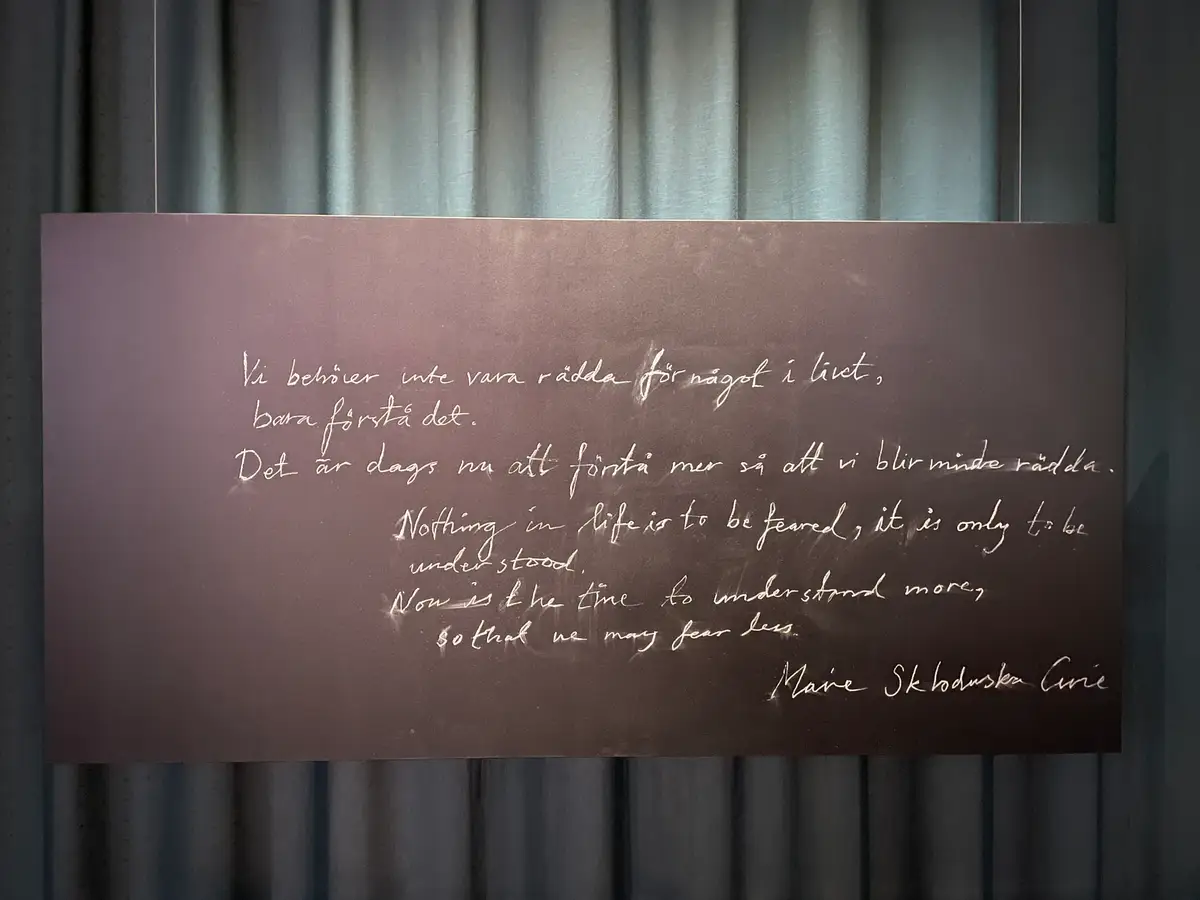 Vi behöver inte vara rädda för något i livet,
bara förstå det.
Det är dags nu att förstå mer så att vi blir mindre rädda.
Nothing in life is to be feared, it is only to be
understood.
Now is the time to understand more,
so that we may fear less.
Marie Sklodowska Curie